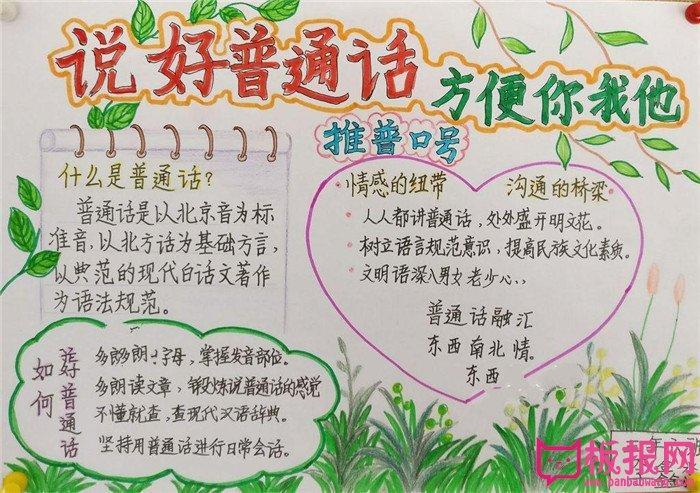 说好普通话
方便你我他
推普口号
什么是普通话?
普通话是以北京音为标
准音,以北方话为基础方言,
以典范的现代白话文著作
为语法规范。
情感的纽带 沟通的桥梁
· 人人都讲普通话,处处盛开明文花。
· 树立语言规范意识,提高民族文化素质。
· 文明语深入男女老少心
普通话融汇
东西南北情。
东西
如何
好普通话
多朗 字母,掌握发音部位。
多朗读文章,锻炼说普通话的感觉
不懂就查,查现代汉语辞典。
坚持用普通话进行日常会话。
板报网
www.banbaowang.com